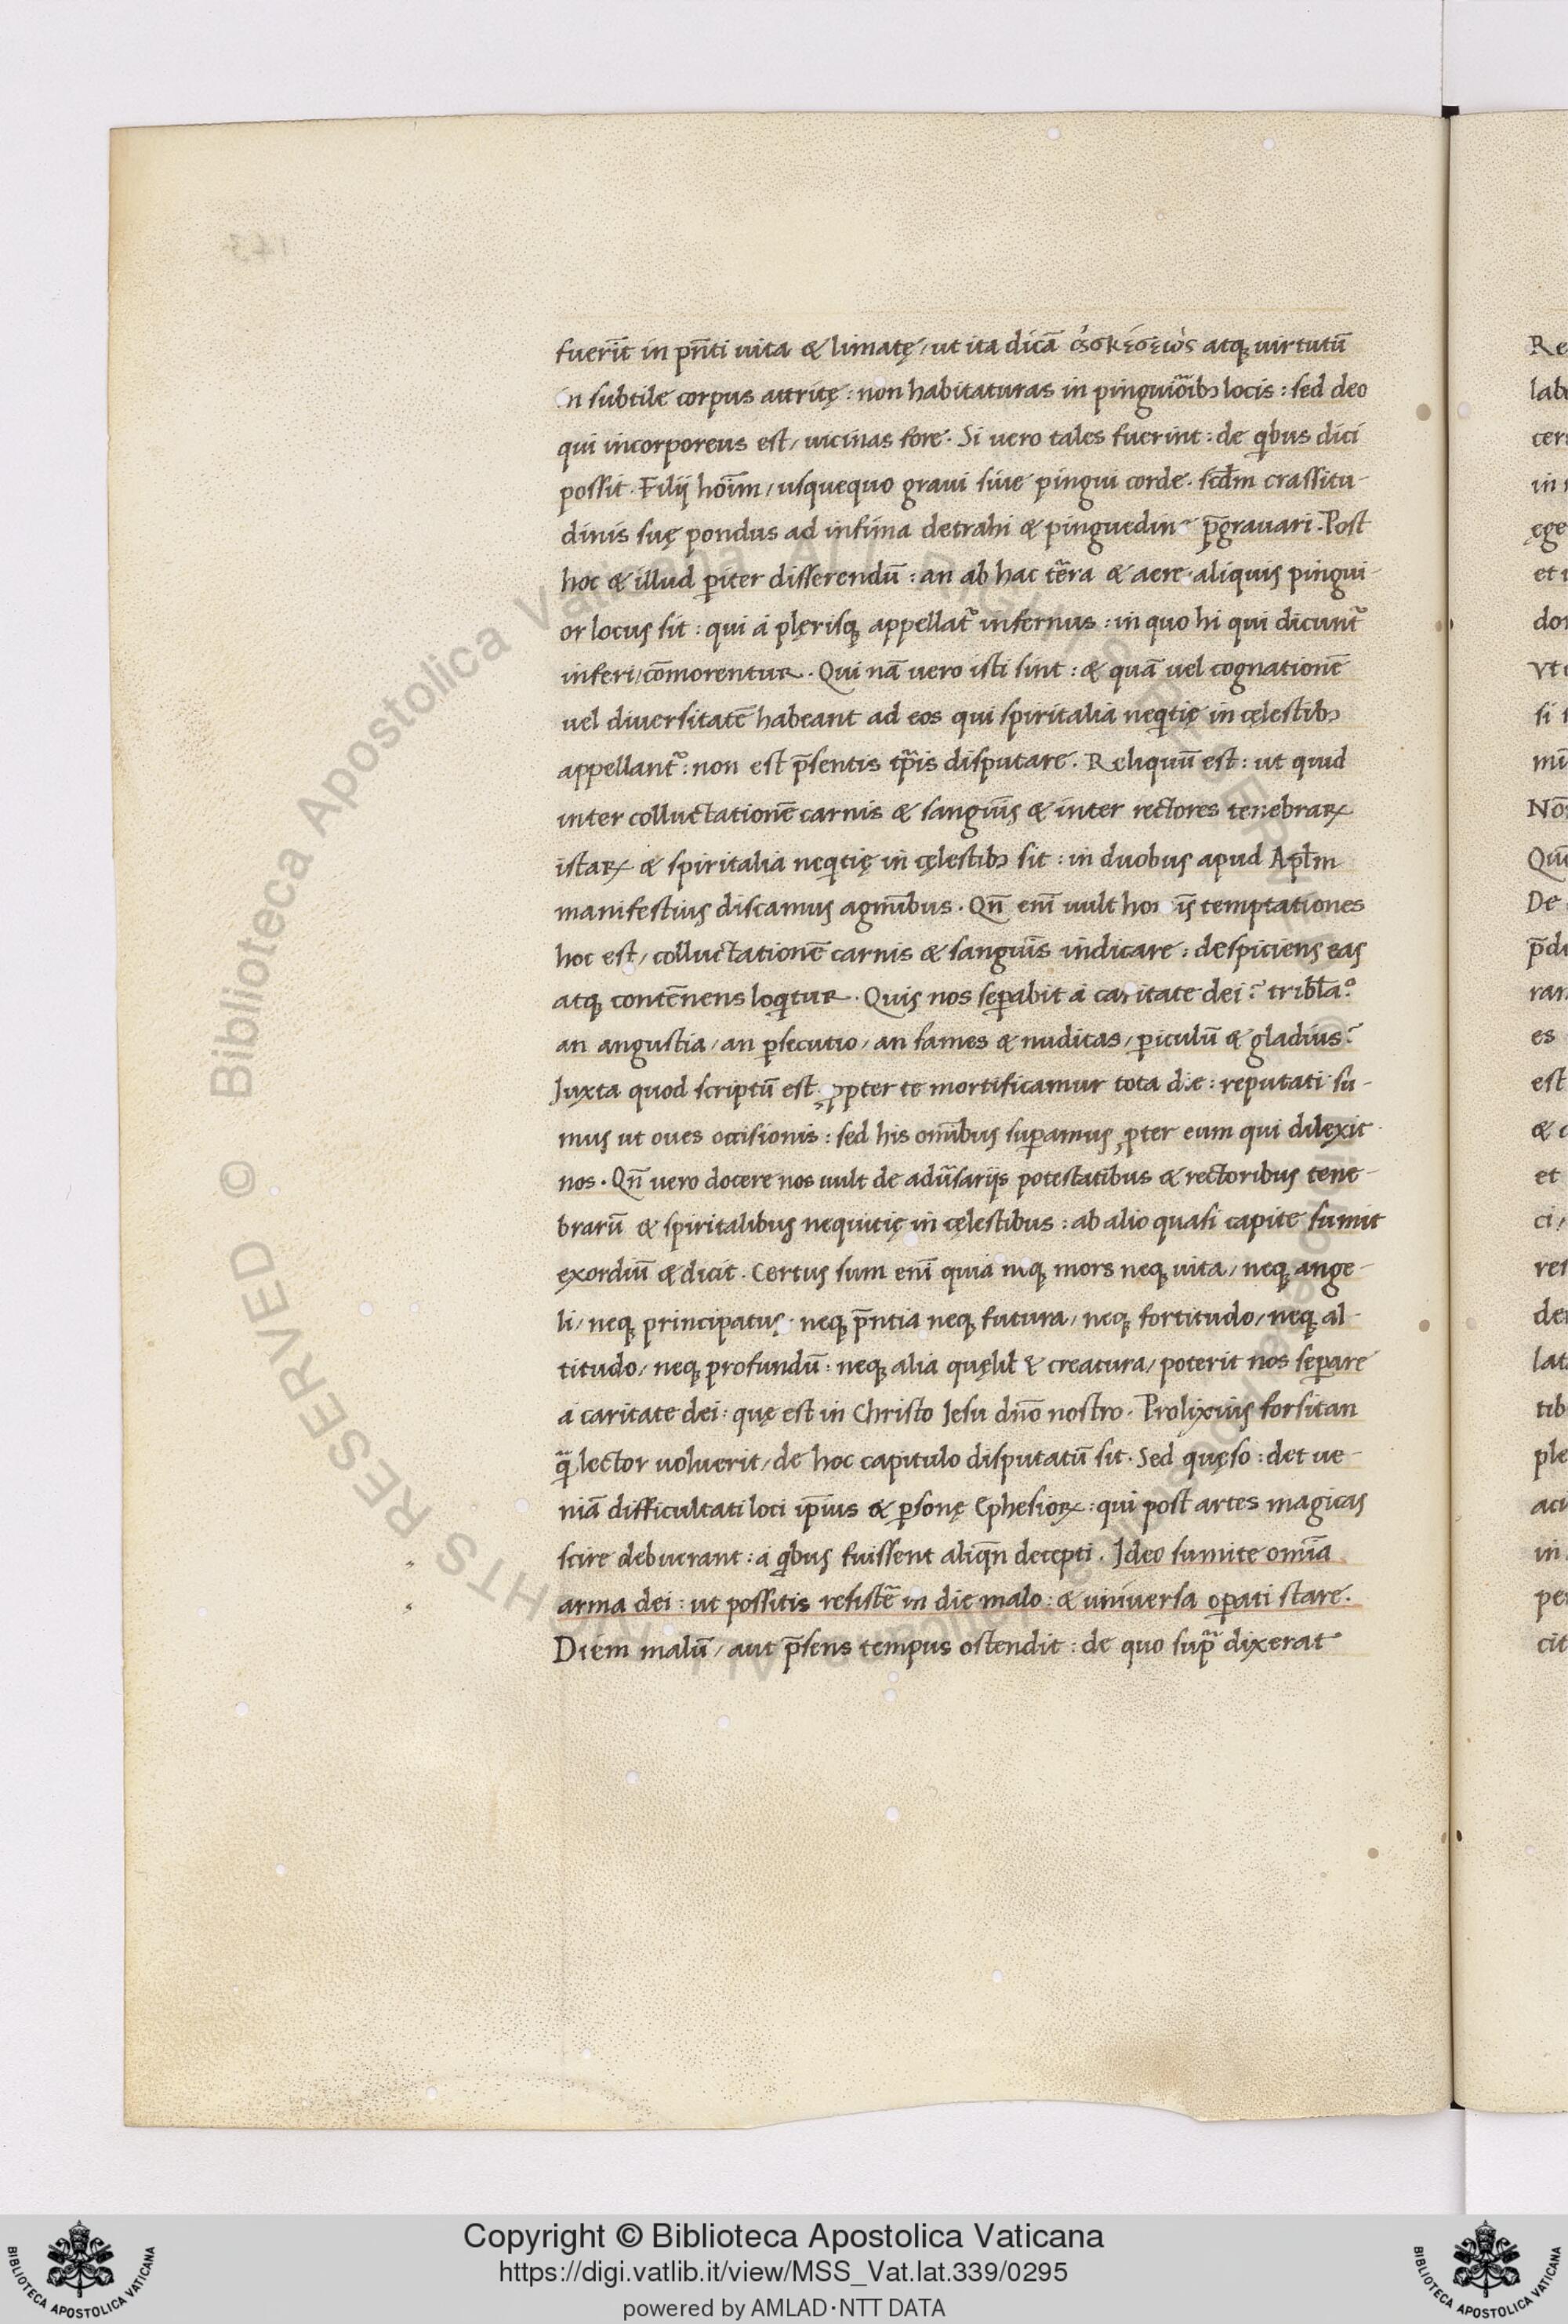 fuerīt in pn̄ti uita & limatę / ut ita dicā ἀσκέσεως atq; uirtutū
in subtile corpus attritę : non habitaturas in pinguiōrib; locis : sed deo
qui incorporeus est / uicinas fore . Si uero tales fuerint : de qbus dici
possit . Filij hoīm / usquequo graui siue pingui corde . scdm crassitu-
dinis suę pondus ad infima detrahi & pinguedine p̄grauari . Post
hoc & illud piter disserendū : an ab hac tēra & aere aliquis pingui-
or locus sit : qui a plęrisq; appellat̃ infernus : in quo hi qui dicunt̃
inferi / cōmorentur . Qui nā uero isti sint : & quā uel cognationē
uel diuersitatē habeant ad eos qui spiritalia neqtię in cęlestib;
appellant̃ : non est p̄sentis tp̄is disputare . Reliquū est : ut quid
inter colluctationē carnis & sanguīs & inter rectores tenebraꝝ
istaꝝ & spiritalia neqtię in cęlestib; sit : in duobus apud Aplm
manifestius discamus agmībus . Qn̄ enī uult hoīs temptationes
hoc est / colluctationē carnis & sanguīs indicare : despiciens eas
atq; contēnens loqtur . Quis nos sepabit a caritate dei ? tribla ?
an angustia / an psecutio / an fames & nuditas / piculū & gladius ?
Juxta quod scriptū est . ppter te mortificamur tota die : reputati su-
mus ut oues occisionis : sed his omībus supamus ppter eum qui dilexit
nos . Qn̄ uero docere nos uult de adūsarijs potestatibus & rectoribus tene-
brarū & spiritalibus nequitię in cęlestibus : ab alio quasi capite sumit
exordiū & dicit . Certus sum enī quia neq; mors neq; uita / neq; ange-
li / neq; principatus . neq; p̄ntia neq; futura / neq; fortitudo / neq; al-
titudo / neq; profundū : neq; alia quęlit & creatura / poterit nos separe
a caritate dei : quę est in Christo Jesu dn̄o nostro . Prolixius forsitan
q̃ lector uoluerit / de hoc capitulo disputatū sit . Sed quęso : det ue-
niā difficultati loci ip̄ius & psonę Ephesioꝝ : qui post artes magicas
scire debuerant : a qbus fuissent aliqn̄ decepti . Ideo sumite omīa
arma dei : ut possitis resistē in die malo : & uniuersa opati stare .
Diem malū / aut p̄sens tempus ostendit : de quo sup̃ dixerat
Copyright © Biblioteca Apostolica Vaticana
https://digi.vatlib.it/view/MSS_Vat.lat.339/0295
powered by AMLAD·NTT DATA